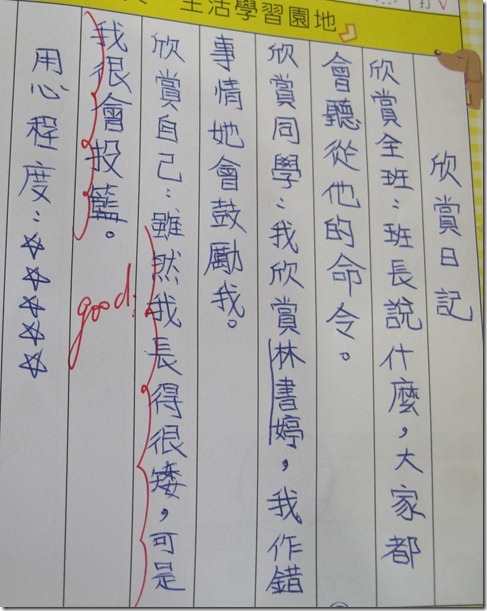 生活學習園地
欣賞日記
欣賞全班：班長說什麼，大家都
會聽從他的命令。
欣賞同學：我欣賞林書婷，我作錯
事情她會鼓勵我。
欣賞自己：雖然我長得很矮，可是
我很會投籃。
good!
用心程度：☆☆☆☆☆